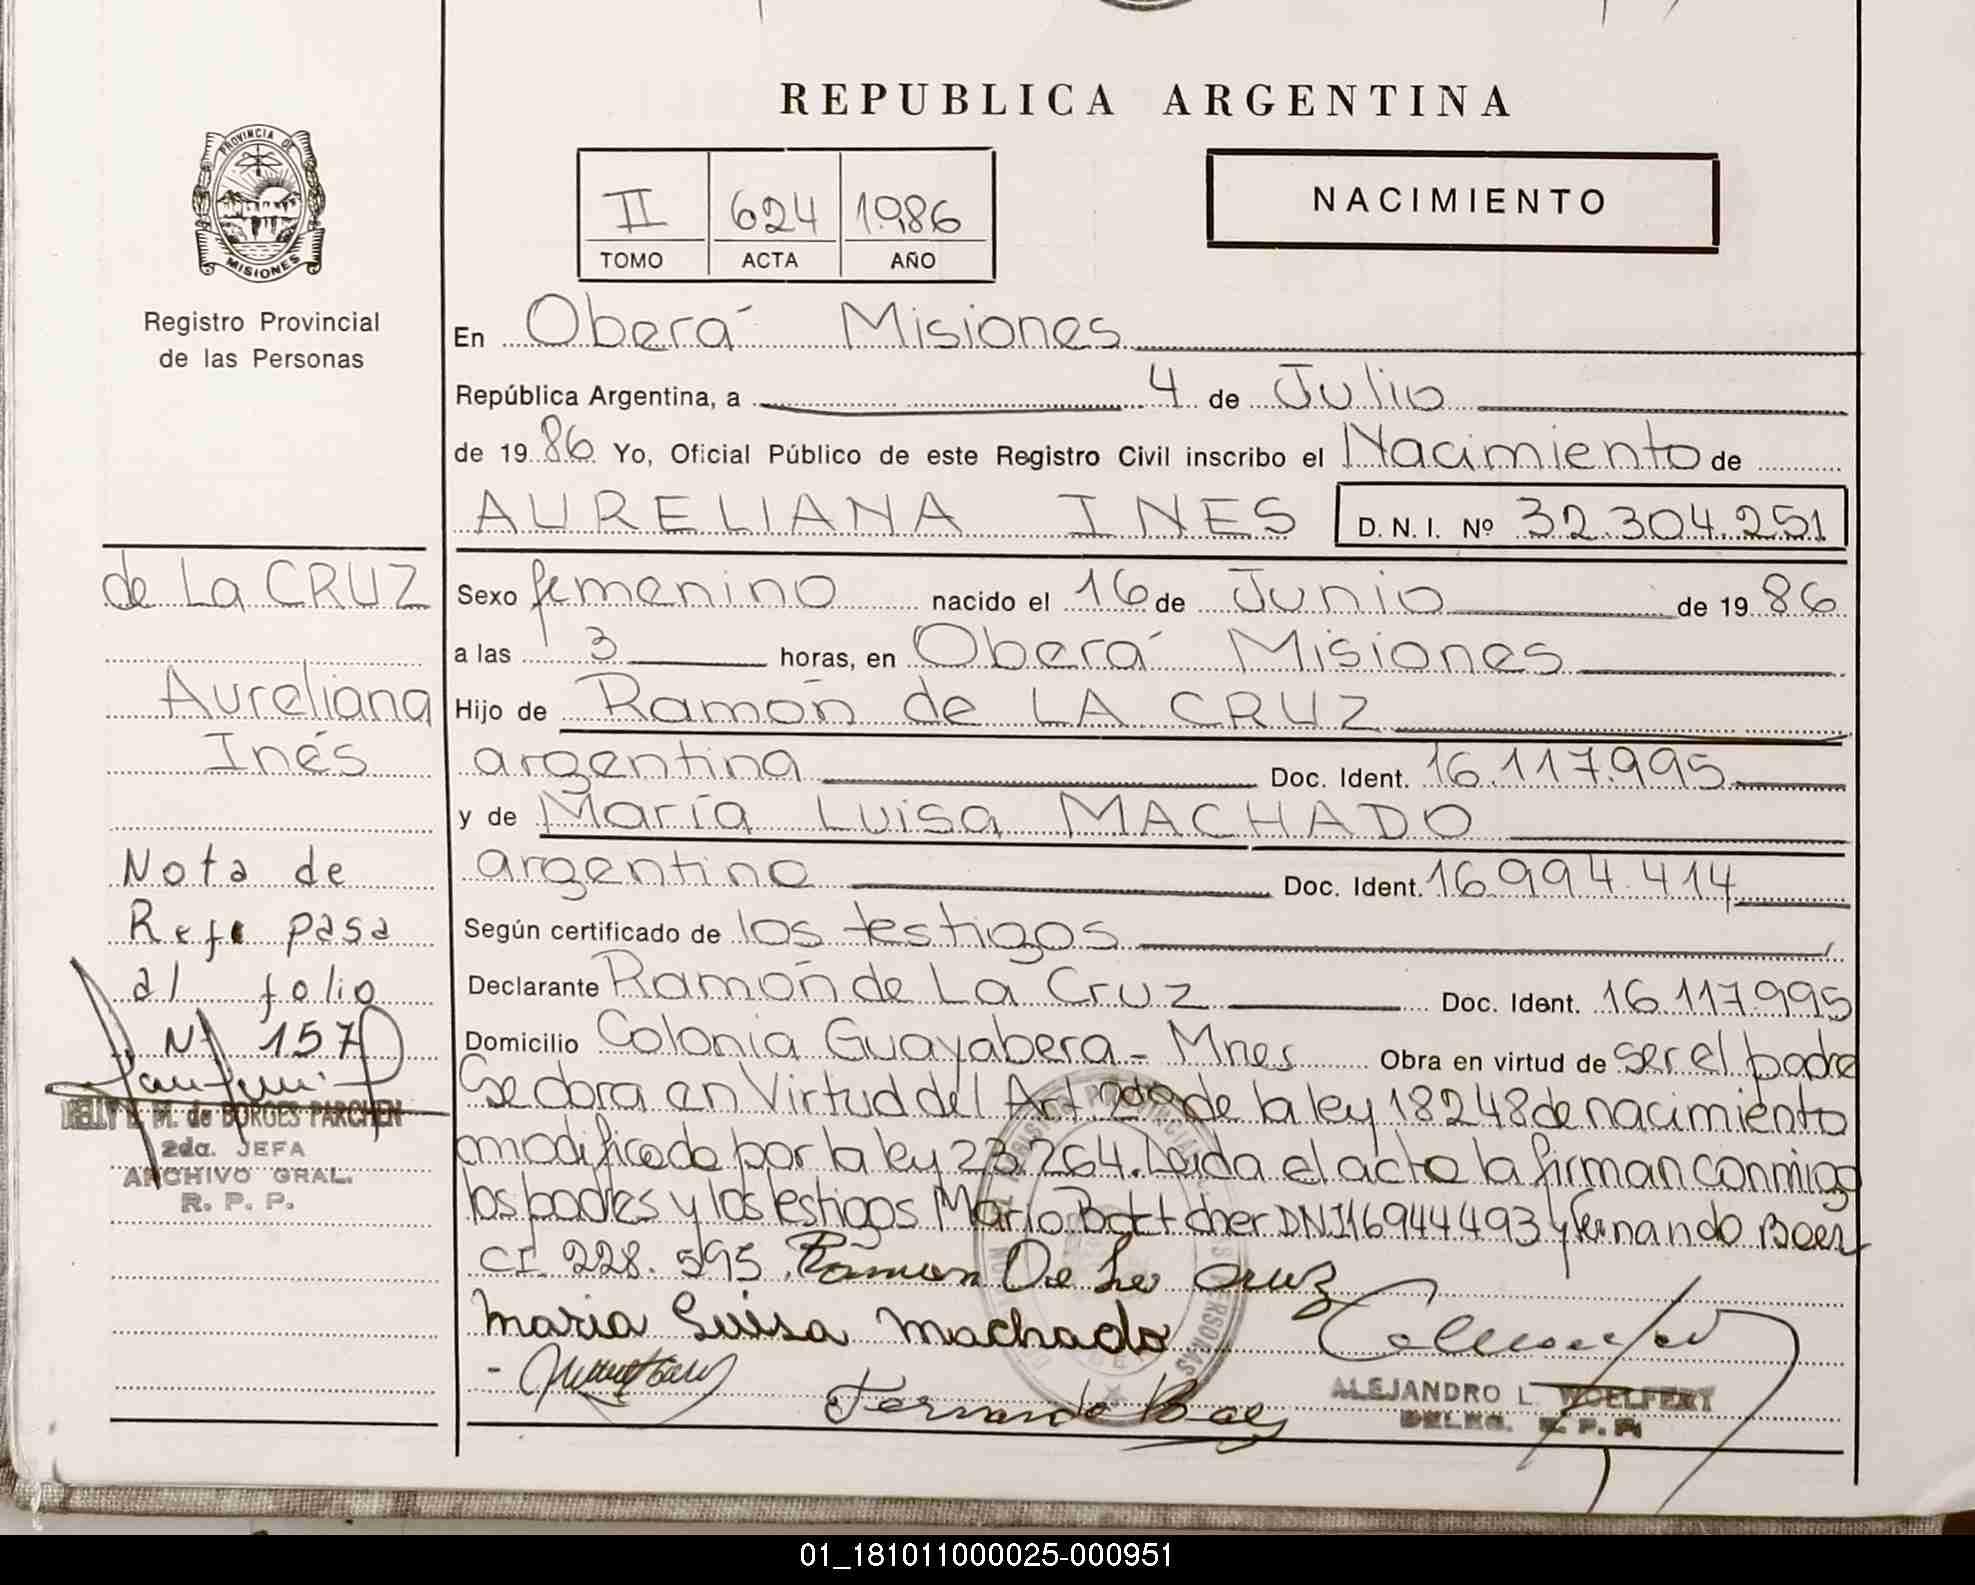 REPUBLICA ARGENTINA
PROVINCIA DE
MISIONES
Registro Provincial
de las Personas
II 624 1986
TOMO ACTA AÑO
NACIMIENTO
En Oberá Misiones
República Argentina, a 4 de Julio
de 1986 Yo, Oficial Público de este Registro Civil inscribo el Nacimiento de
AURELIANA INES D. N. I. Nº 32.304.251
de La CRUZ
Aureliana
Inés
Nota de
Refe pasa
al folio
Nº 157
NELLY E. M. de BORGES PARCHEN
2da. JEFA
ARCHIVO GRAL.
R. P. P.
Sexo femenino nacido el 16 de Junio de 1986
a las 3 horas, en Oberá Misiones
Hijo de Ramón de LA CRUZ
argentina Doc. Ident. 16.117.995
y de María Luisa MACHADO
argentina Doc. Ident. 16994.414
Según certificado de los testigos
Declarante Ramón de La Cruz Doc. Ident. 16.117.995
Domicilio Colonia Guayabera - Mnes Obra en virtud de ser el padre
Se dora en Virtud del Art de la ley 18248 de nacimiento
modificado por la ley 23.264. Leida el acta la firman conmigo
los padres y los testigos Mario Bottcher DNI 16944493 y Fernando Baez
CI. 228.595. Ramon De La Cruz
Maria Luisa Machado
Fernando Baez
ALEJANDRO L. WOELFERT
DELEG. R. P. P.
01_181011000025-000951